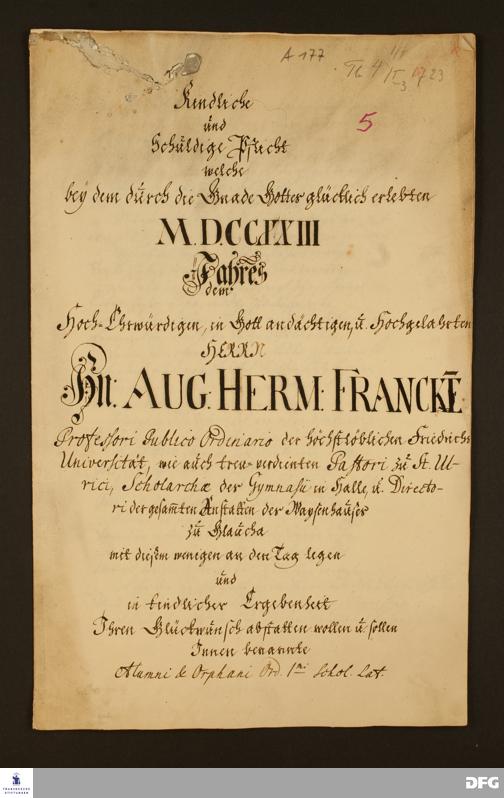 A 177
5
Kindliche
und
Schuldige Pflicht
welche
bey dem durch die Gnade Gottes glücklich erlebten
M.D.CCXXIII
Jahres
dem
Hoch-Ehrwürdigen, in Gott andächtigen, u. Hochgelahrten
HERRN
Hn: AUG: HERM: FRANCKE
Professori Publico Ordinario der höchstlöblichen Friedrichs
Universität, wie auch treu-verdienten Pastori zu St. Ul-
rici, Scholarchæ der Gymnasii in Halle, u. Directo-
ri der gesam̅ten Anstalten der Waysenhäuser
zu Glaucha
mit diesem wenigen an den Tag legen
und
in kindlicher Ergebenheit
Ihren Glückwunsch abstatten wollen u. sollen
Innen benannte
Alumni & Orphani Ord. 1mi Schol. Lat.
FRANCKESCHE
STIFTUNGEN
DFG